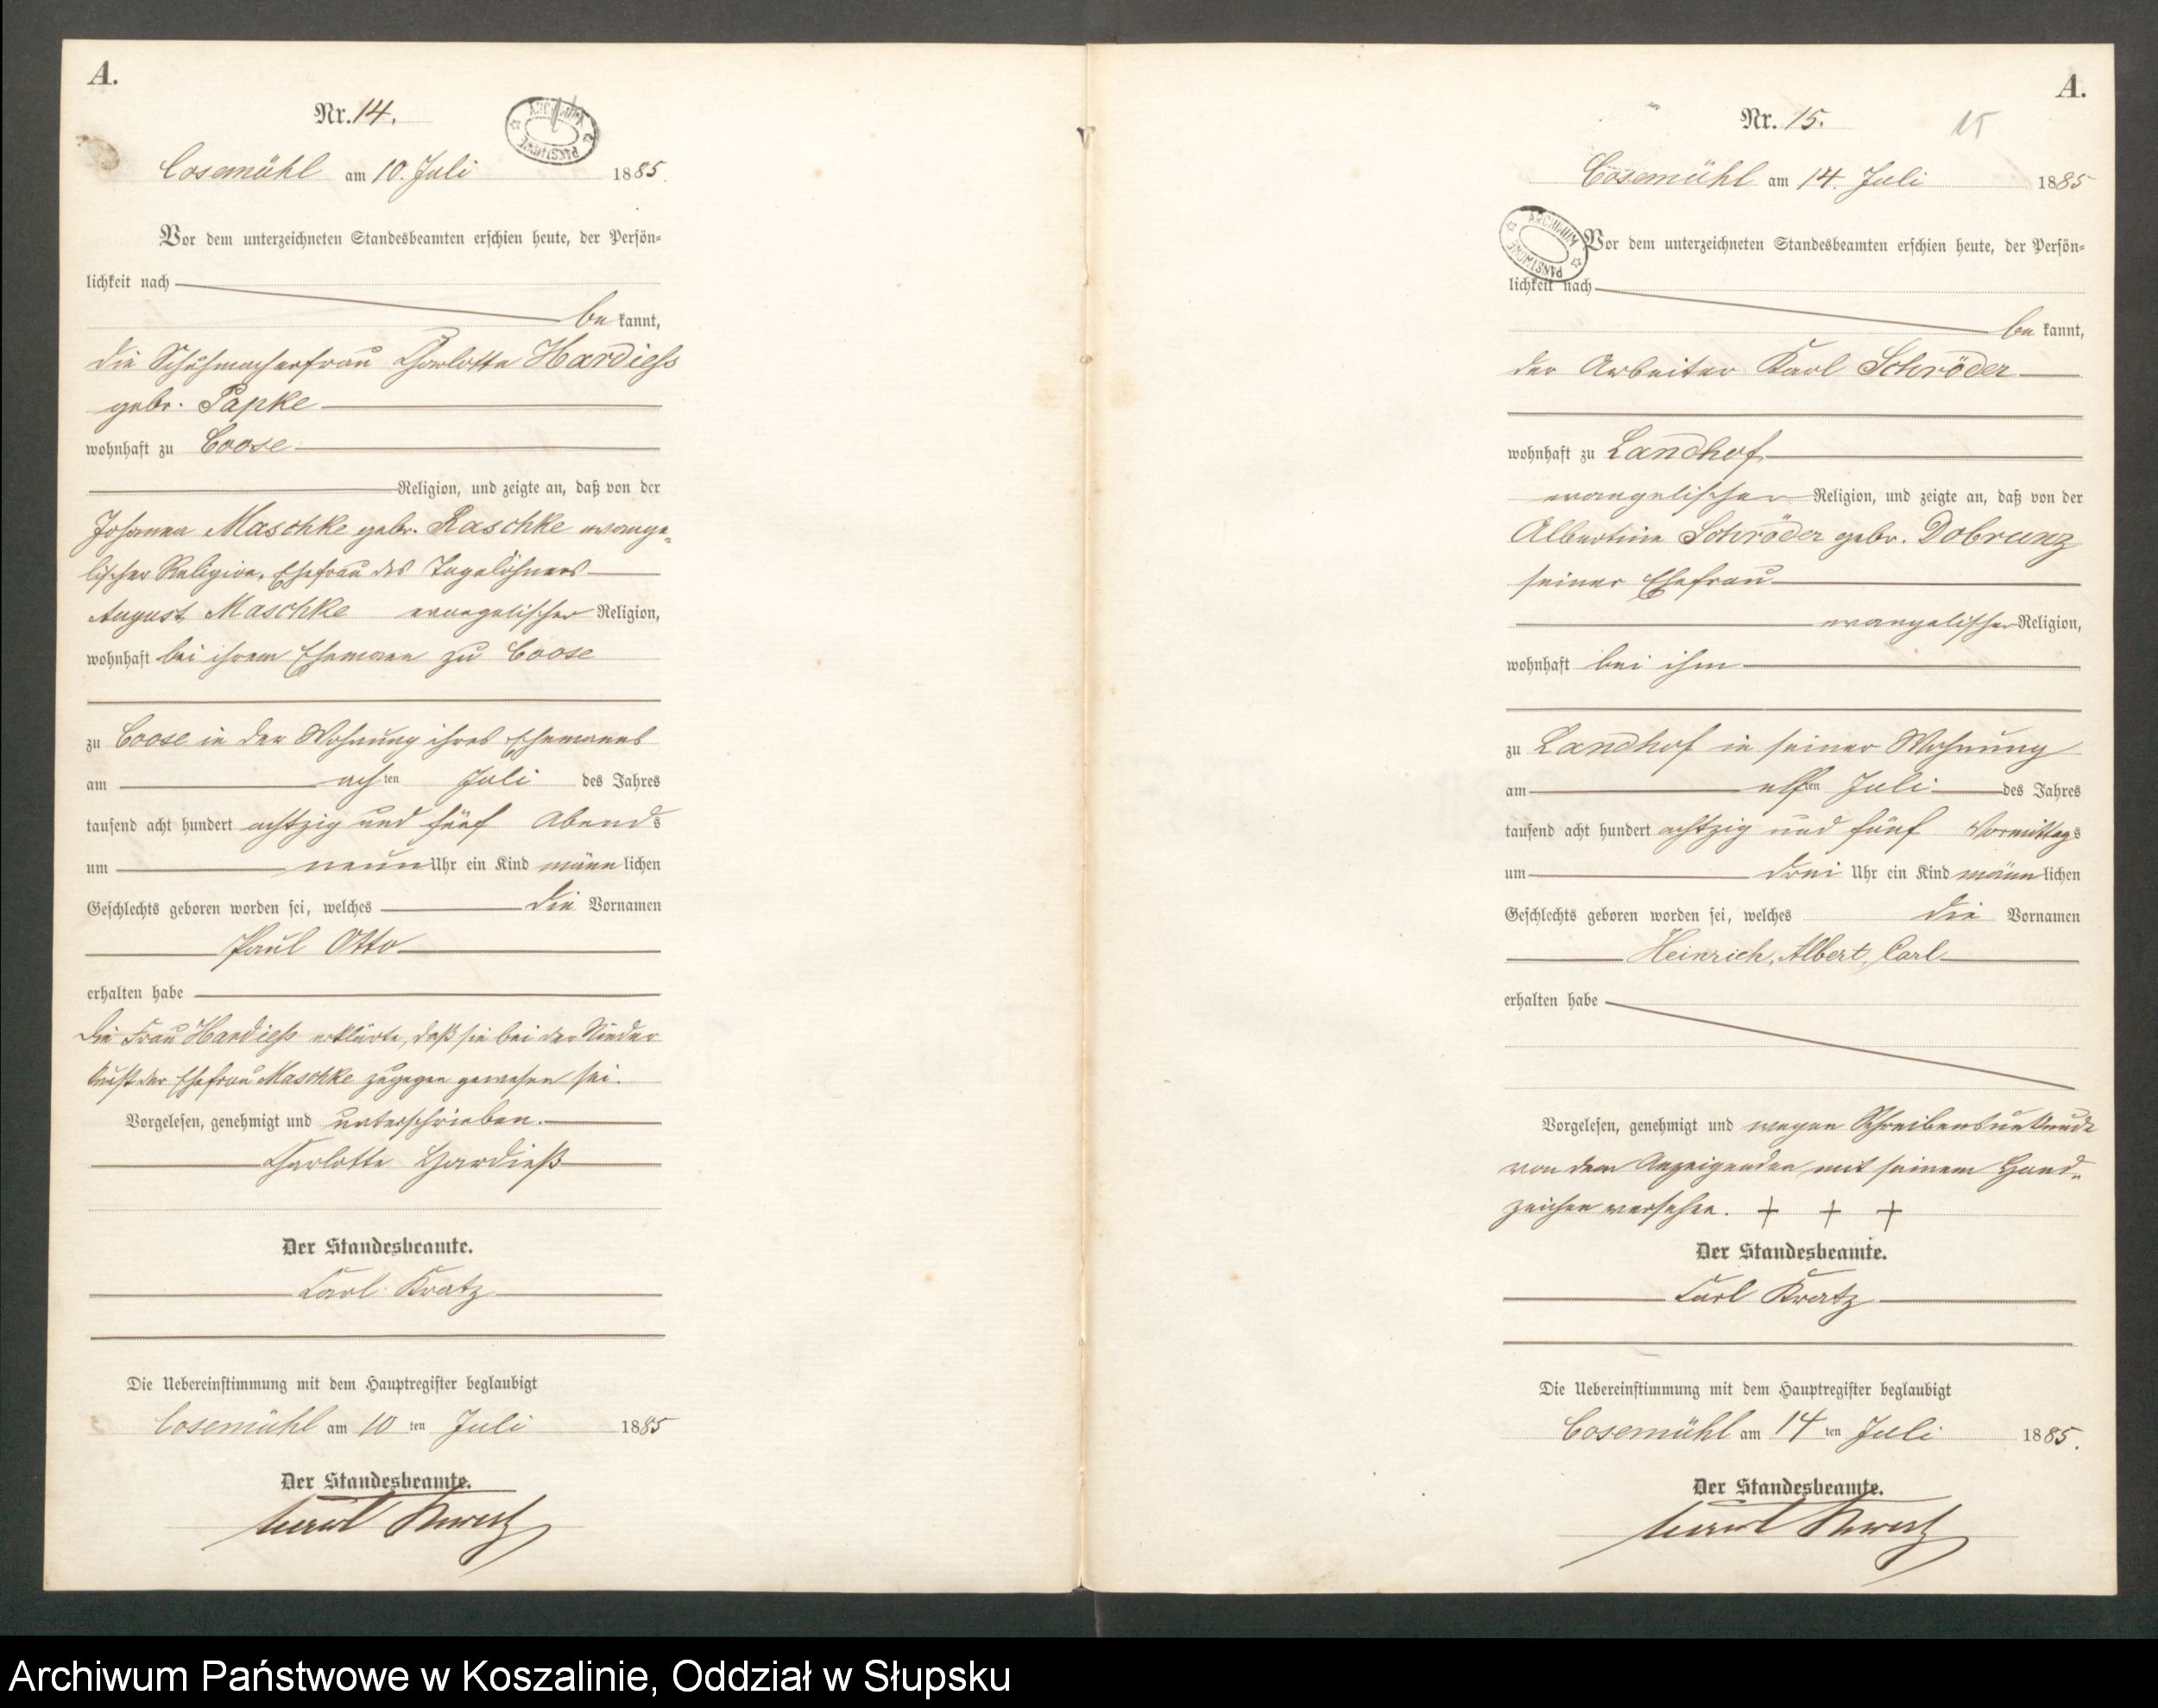 A.
Nr. 14.
ARCHIWUM PAŃSTWOWE
Cosemühl am 10. Juli 1885.
Vor dem unterzeichneten Standesbeamten erschien heute, der Persön-
lichkeit nach
be kannt,
die Schuhmacherfrau Charlotte Hardieß
gebr. Papke
wohnhaft zu Coose
Religion, und zeigte an, daß von der
Johanna Maschke gebr. Raschke evange-
lischer Religion, Ehefrau des Tagelöhners
August Maschke evangelischer Religion,
wohnhaft bei ihrem Ehemann zu Coose
zu Coose in der Wohnung ihres Ehemannes
am achten Juli des Jahres
tausend acht hundert achtzig und fünf Abends
um neun Uhr ein Kind männlichen
Geschlechts geboren worden sei, welches die Vornamen
Paul Otto
erhalten habe
Die Frau Hardieß erklärte, daß sie bei der Nieder
kunft der Ehefrau Maschke zugegen gewesen sei.
Vorgelesen, genehmigt und unterschrieben.
Charlotte Hardieß
Der Standesbeamte.
Carl Kratz
Die Uebereinstimmung mit dem Hauptregister beglaubigt
Cosemühl am 10 ten Juli 1885
Der Standesbeamte.
Carl Kratz
A.
Nr. 15.
15
Cosemühl am 14. Juli 1885
ARCHIWUM PAŃSTWOWE
Vor dem unterzeichneten Standesbeamten erschien heute, der Persön-
lichkeit nach
be kannt,
der Arbeiter Karl Schröder
wohnhaft zu Landhof
evangelischer Religion, und zeigte an, daß von der
Albertine Schröder gebr. Dobrunz
seiner Ehefrau
evangelischer Religion,
wohnhaft bei ihm
zu Landhof in seiner Wohnung
am elften Juli des Jahres
tausend acht hundert achtzig und fünf Vormittags
um drei Uhr ein Kind männlichen
Geschlechts geboren worden sei, welches die Vornamen
Heinrich, Albert, Carl
erhalten habe
Vorgelesen, genehmigt und wegen Schreibensunkunde
von dem Anzeigenden mit seinem Hand-
zeichen versehen. + + +
Der Standesbeamte.
Carl Kratz
Die Uebereinstimmung mit dem Hauptregister beglaubigt
Cosemühl am 14 ten Juli 1885.
Der Standesbeamte.
Carl Kratz
Archiwum Państwowe w Koszalinie, Oddział w Słupsku